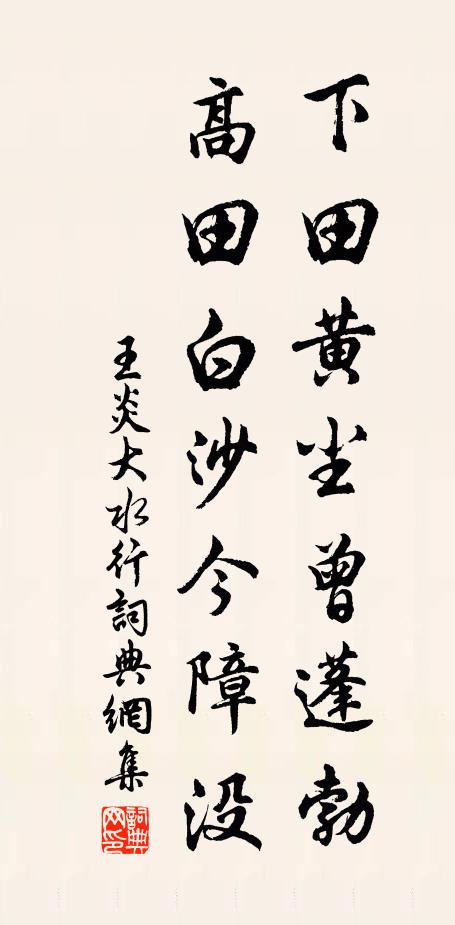 下田黄尘曾蓬勃
高田白沙今障没
王炎大水行詞典網集
詞典网印